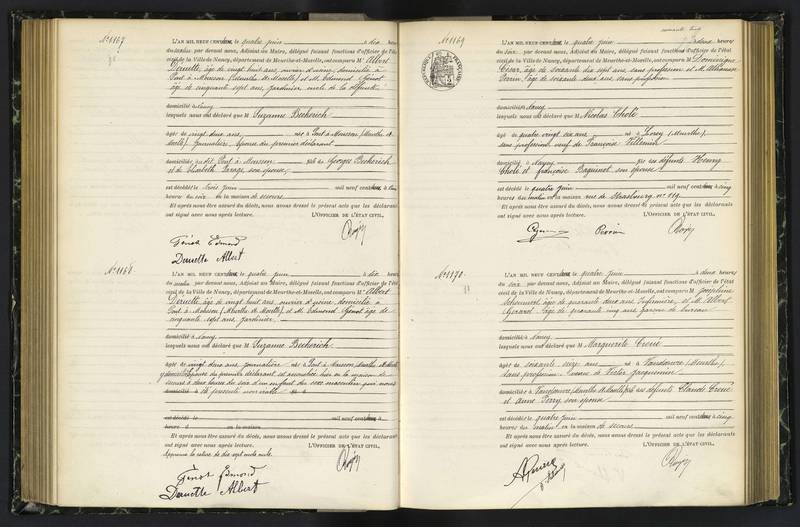 N° 1167
L'AN MIL NEUF CENT le quatre juin à dix heures
du matin par devant nous, Adjoint au Maire, délégué faisant fonctions d'officier de l'état
civil de la Ville de Nancy, département de Meurthe-et-Moselle, ont comparu M. Albert
Deruette, âgé de vingt huit ans, ouvrier d'usine, domicilié à
Pont à Mousson (Meurthe et Moselle) et M. Edmond Génot
âgé de cinquante sept ans, jardinier, oncle de la défunte
domicilié à Nancy
lesquels nous ont déclaré que M Suzanne Beckerich
âgée de vingt deux ans, née à Pont à Mousson (Meurthe et
Moselle) journalière épouse du premier déclarant
domiciliée au dit Pont à Mousson fille de Georges Beckerich
et de Elisabeth son épouse
est décédée le trois juin mil neuf cent à
heures du soir en la maison de secours
Et après nous être assuré du décès, nous avons dressé le présent acte que les déclarants
ont signé avec nous après lecture. L'OFFICIER DE L'ÉTAT CIVIL,
Génot Edmond
Deruette Albert
N° 1168
L'AN MIL NEUF CENT le quatre juin à dix heures
du matin par devant nous, Adjoint au Maire, délégué faisant fonctions d'officier de l'état
civil de la Ville de Nancy, département de Meurthe-et-Moselle, ont comparu M. Albert
Deruette âgé de vingt huit ans, ouvrier d'usine domicilié à
Pont à Mousson (Meurthe et Moselle) et M. Edmond Génot âgé de
cinquante sept ans, jardinier
domicilié à Nancy
lesquels nous ont déclaré que M Suzanne Beckerich
âgée de vingt deux ans, journalière née à Pont à Mousson (Meurthe et Moselle)
y domiciliée épouse du premier déclarant est accouchée hier en la maison de
secours à deux heures du soir d'un enfant du sexe masculin qui nous
domicilié à a été présenté non viable
est décédé le mil neuf cent à
heures d en la maison
Et après nous être assuré du décès, nous avons dressé le présent acte que les déclarants
ont signé avec nous après lecture. L'OFFICIER DE L'ÉTAT CIVIL,
Approuvé la rature de dix sept mots nuls.
Génot Edmond
Deruette Albert
N° 1169
L'AN MIL NEUF CENT le quatre juin à deux heures
du soir par devant nous, Adjoint au Maire, délégué faisant fonctions d'officier de l'état
civil de la Ville de Nancy, département de Meurthe-et-Moselle, ont comparu M. Dominique
César, âgé de soixante dix sept ans, sans profession et M. Athanase
Perrin, âgé de soixante deux ans, sans profession
domiciliés à Nancy
lesquels nous ont déclaré que M Nicolas Cholé
âgé de quatre vingt six ans né à (Meurthe),
sans profession veuf de Françoise Villemin
domicilié à Nancy fils de défunts Henry
Cholé et Françoise Baguinot son épouse
est décédé le quatre juin mil neuf cent à cinq
heures du matin en sa maison, rue de Strasbourg n° 119
Et après nous être assuré du décès, nous avons dressé le présent acte que les déclarants
ont signé avec nous après lecture. L'OFFICIER DE L'ÉTAT CIVIL,
César Perrin
N° 1170
L'AN MIL NEUF CENT le quatre juin à deux heures
du soir par devant nous, Adjoint au Maire, délégué faisant fonctions d'officier de l'état
civil de la Ville de Nancy, département de Meurthe-et-Moselle, ont comparu M. Joséphine
âgée de quarante deux ans, infirmière, et M. Albert
Gérard âgé de quarante cinq ans garçon de bureau
domiciliés à Nancy
lesquels nous ont déclaré que M Marguerite Croué
âgée de soixante onze ans née à Vandoeuvre (Meurthe)
sans profession veuve de Victor Jacqueminet
domiciliée à Vandoeuvre (Meurthe et Moselle) fille de défunts Claude Croué
et Anne Ferry, son épouse
est décédée le quatre juin mil neuf cent à cinq
heures du matin en la maison de secours
Et après nous être assuré du décès, nous avons dressé le présent acte que les déclarants
ont signé avec nous après lecture. L'OFFICIER DE L'ÉTAT CIVIL,